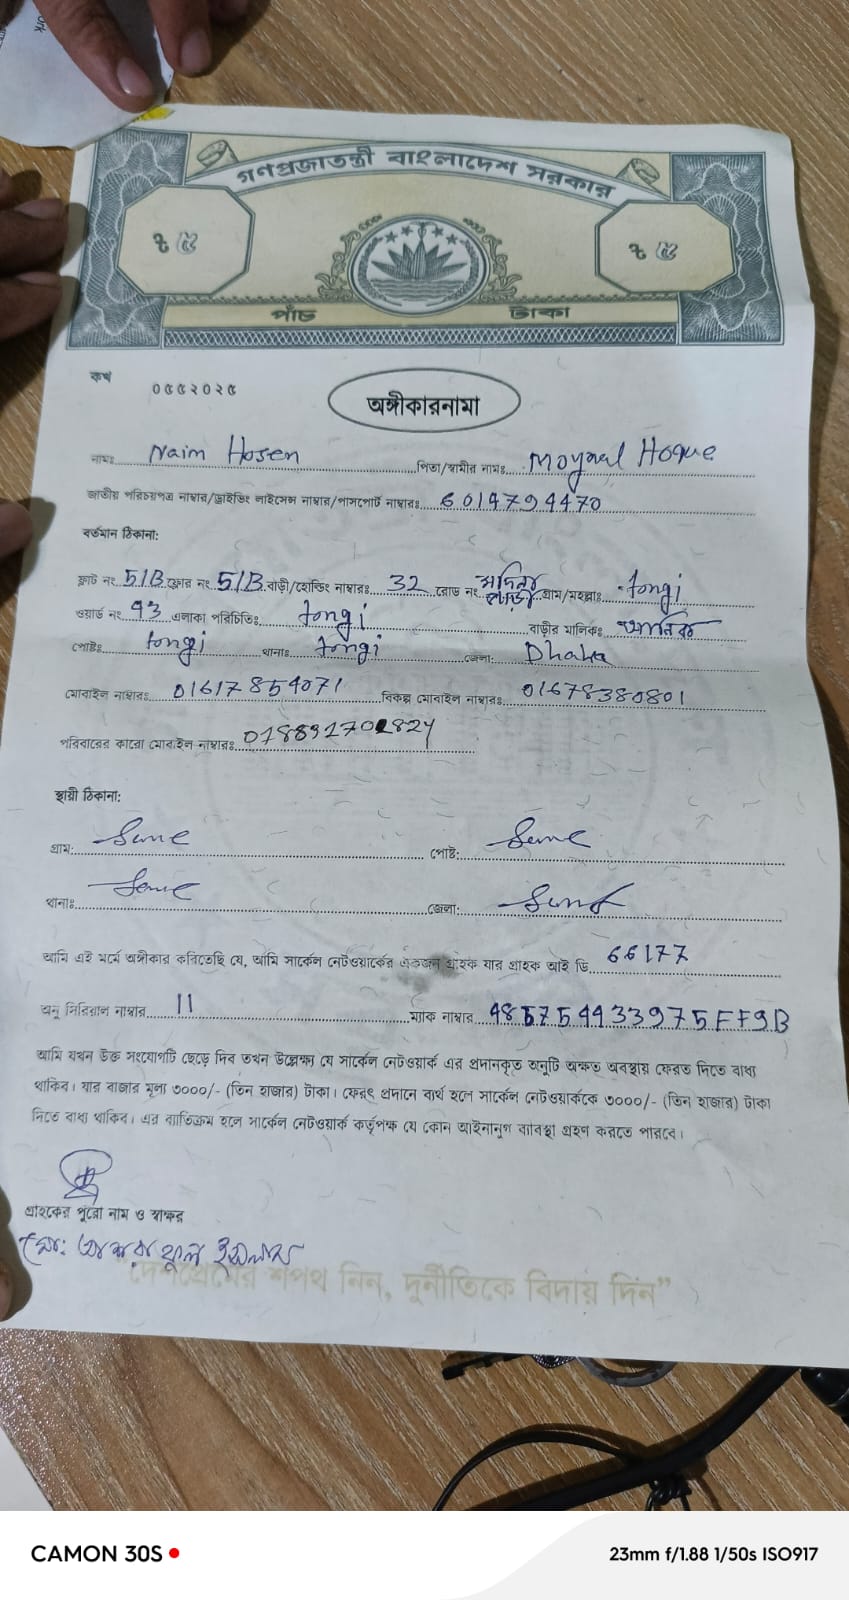 ork
গণপ্রজাতন্ত্রী বাংলাদেশ সরকার
৳ ৫ ৳ ৫
পাঁচ টাকা
কখ ০৫৫২০২৫
অঙ্গীকারনামা
নামঃ Naim Hosen পিতা/স্বামীর নামঃ Moynal Hoque
জাতীয় পরিচয়পত্র নাম্বার/ড্রাইভিং লাইসেন্স নাম্বার/পাসপোর্ট নাম্বারঃ 6014794470
বর্তমান ঠিকানা:
ফ্লাট নং 5/B ফ্লোর নং 5/B বাড়ী/হোল্ডিং নাম্বারঃ 32 রোড নং গ্রাম/মহল্লাঃ tongi
ওয়ার্ড নং 43 এলাকা পরিচিতিঃ tongi বাড়ীর মালিকঃ
পোষ্টঃ tongi থানাঃ tongi জেলা: Dhaka
মোবাইল নাম্বারঃ 01617854071 বিকল্প মোবাইল নাম্বারঃ 01678380801
পরিবারের কারো মোবাইল নাম্বারঃ
স্থায়ী ঠিকানা:
গ্রাম: Same পোষ্ট: Same
থানাঃ Same জেলা: Same
আমি এই মর্মে অঙ্গীকার করিতেছি যে, আমি সার্কেল নেটওয়ার্কের একজন গ্রাহক যার গ্রাহক আই ডি 66177
অনু সিরিয়াল নাম্বার 11 ম্যাক নাম্বার 485754433975FF9B
আমি যখন উক্ত সংযোগটি ছেড়ে দিব তখন উল্লেক্ষ্য যে সার্কেল নেটওয়ার্ক এর প্রদানকৃত অনুটি অক্ষত অবস্থায় ফেরত দিতে বাধ্য
থাকিব। যার বাজার মূল্য ৩০০০/- (তিন হাজার) টাকা। ফেরৎ প্রদানে ব্যর্থ হলে সার্কেল নেটওয়ার্ককে ৩০০০/- (তিন হাজার) টাকা
দিতে বাধ্য থাকিব। এর ব্যতিক্রম হলে সার্কেল নেটওয়ার্ক কর্তৃপক্ষ যে কোন আইনানুগ ব্যাবস্থা গ্রহণ করতে পারবে।
গ্রাহকের পুরো নাম ও স্বাক্ষর
মো: আশরাফুল ইসলাম
"দেশপ্রেমের শপথ নিন, দুর্নীতিকে বিদায় দিন"
CAMON 30S 23mm f/1.88 1/50s ISO917